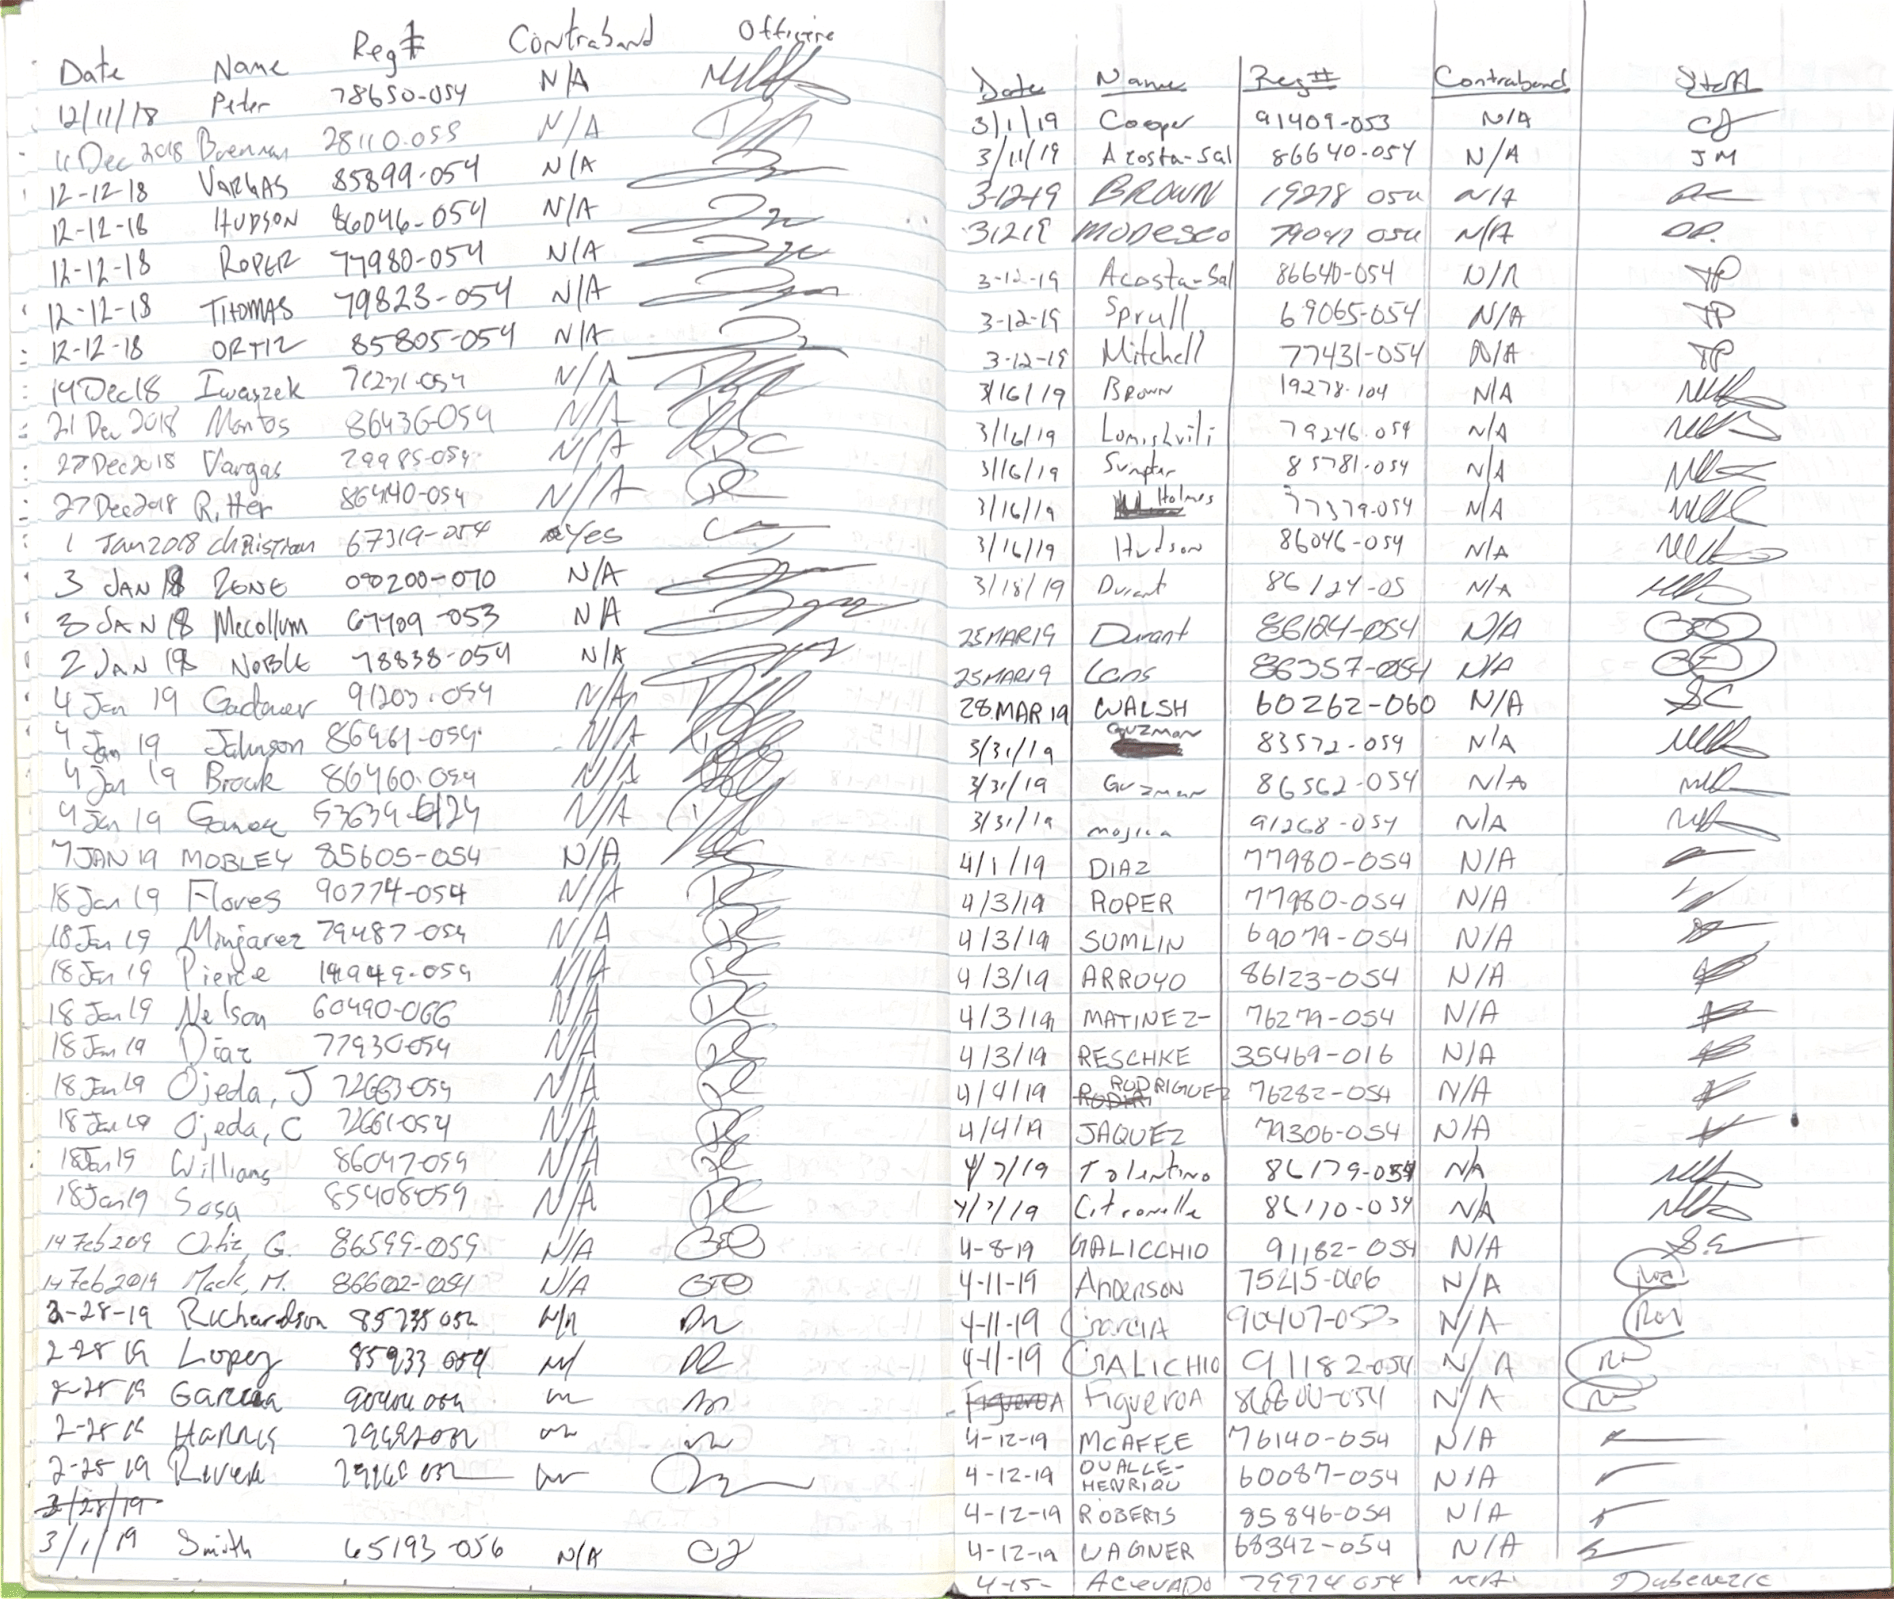 Date Name Reg# Contraband
12/11/18 Peter 78650-054 N/A
11 Dec 2018 Brennan 28110-055 N/A
12-12-18 VARGAS 85899-054 N/A
12-12-18 HUDSON 86046-054 N/A
12-12-18 ROPER 77980-054 N/A
12-12-18 THOMAS 79823-054 N/A
12-12-18 ORTIZ 85805-054 N/A
14 Dec 18 Iwaszek N/A
21 Dec 2018 86436-054 N/A
27 Dec 2018 Vargas 29985-054 N/A
27 Dec 2018 Ritter 86440-054 N/A
1 Jan 2018 Christian 67319-054 Yes
3 JAN 18 RENE 00200-070 N/A
3 JAN 18 Mccollum 67709-053 N/A
2 JAN 18 NOBLE 78838-054 N/A
4 Jan 19 91203-054 N/A
4 Jan 19 Johnson 86961-054 N/A
4 Jan 19 86460-054 N/A
4 Jan 19 N/A
7 JAN 19 MOBLEY 85605-054 N/A
18 Jan 19 Flores 90774-054 N/A
18 Jan 19 Minjarez 79487-054 N/A
18 Jan 19 Pierce N/A
18 Jan 19 Nelson 60490-066 N/A
18 Jan 19 Diaz 77930-054 N/A
18 Jan 19 Ojeda, J 72663-054 N/A
18 Jan 19 Ojeda, C 72661-054 N/A
18 Jan 19 Williams 86047-054 N/A
18 Jan 19 Sosa 85408-054 N/A
14 Feb 2019 Ortiz, G. 86599-054 N/A
14 Feb 2019 Mack, M. 86602-054 N/A
2-28-19 Richardson N/A
2-28 19 Lopez 85933 054
2-28 19 Garcia
2-28 19 Harris
2-28 19 Rivera
3/28/19
3/1/19 Smith 65193-056 N/A CJ
Date Name Reg# Contraband Staff
3/1/19 Cooper 91409-053 N/A CJ
3/11/19 Acosta-Sal 86640-054 N/A JM
3-12-19 BROWN 19278 054 N/A
3-12-19 MODESCO N/A
3-12-19 Acosta-Sal 86640-054 N/A JP
3-12-19 Sprull 69065-054 N/A JP
3-12-19 Mitchell 77431-054 N/A JP
3/16/19 Brown 19278-104 N/A
3/16/19 Lomishvili 79246-054 N/A
3/16/19 Sumpter 85781-054 N/A
3/16/19 Holmes 77379-054 N/A
3/16/19 Hudson 86046-054 N/A
3/18/19 Durant 86124-05 N/A
25MAR19 Durant 86124-054 N/A
25MAR19 86357-054 N/A
28 MAR 19 WALSH 60262-060 N/A SC
3/31/19 Guzman 83572-054 N/A
3/31/19 Guzman 86562-054 N/A
3/31/19 mojica 91268-054 N/A
4/1/19 DIAZ 77980-054 N/A
4/3/19 ROPER 77980-054 N/A
4/3/19 SUMLIN 69079-054 N/A
4/3/19 ARROYO 86123-054 N/A
4/3/19 MATINEZ- 76279-054 N/A
4/3/19 RESCHKE 35469-016 N/A
4/4/19 RODRIGUEZ 76282-054 N/A
4/4/19 JAQUEZ 79306-054 N/A
4/7/19 Tolentino 86179-054 N/A
4/7/19 Citronella 86170-054 N/A
4-8-19 GALICCHIO 91182-054 N/A
4-11-19 Anderson 75215-066 N/A
4-11-19 Garcia N/A
4-11-19 GALICHIO 91182-054 N/A
FigueroA FigueroA 86600-054 N/A
4-12-19 MCAFEE 76140-054 N/A
4-12-19 OVALLE-HENRIQU 60087-054 N/A
4-12-19 ROBERTS 85846-054 N/A
4-12-19 WAGNER 68342-054 N/A
4-15- ACEVADO 79974 054 N/A